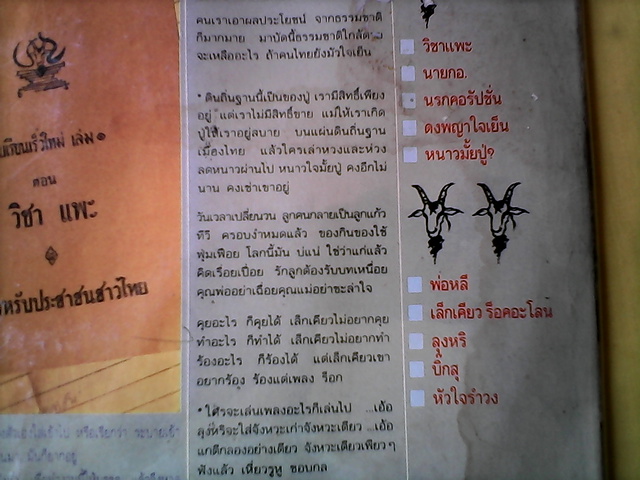 เรียนเร็วใหม่ เล่ม ๑
ตอน
วิชา แพะ
หรับประชาชนชาวไทย
คนเราเอาผลประโยชน์ จากธรรมชาติ
ก็มากมาย มาบัดนี้ธรรมชาติใกล้
จะเหลืออะไร ถ้าคนไทยยังมัวใจเย็น
* ดินถิ่นฐานนี้เป็นของปู่ เรามีสิทธิ์เพียง
อยู่ แต่เราไม่มีสิทธิ์ขาย แม่ให้เราเกิด
ปู่ให้เราอยู่สบาย บนแผ่นดินถิ่นฐาน
เมืองไทย แล้วใครเล่าหวงและห่วง
ลดหนาวผ่านไป หนาวใจมั้ยปู่ คงอีกไม่
นาน คงเช่าเขาอยู่
วันเวลาเปลี่ยนวน ลูกคนกลายเป็นลูกแก้ว
ทีวี ครอบงำหมดแล้ว ของกินของใช้
ฟุ่มเฟือย โลกนี้มัน บ่แน่ ใช่ว่าแก่แล้ว
คิดเรื่อยเปื่อย รักลูกต้องรับบทเหนื่อย
คุณพ่ออย่าเฉื่อยคุณแม่อย่าชะล่าใจ
คุยอะไร ก็คุยได้ เล็กเคียวไม่อยากคุย
ทำอะไร ก็ทำได้ เล็กเคียวไม่อยากทำ
ร้องอะไร ก็ร้องได้ แต่เล็กเคียวเขา
อยากร้อง ร้องแต่เพลง ร็อก
* ใครจะเล่นเพลงอะไรก็เล่นไป ...เอ้อ
ลุงหริจะใส่จังหวะเก่าจังหวะเดียว ...เอ้อ
แกตีกลองอย่างเดียว จังหวะเดียวเพียวๆ
ฟังแล้ว เหี่ยวรูหู ชอบกล
วิชาแพะ
นายกอ.
นรกคอรัปชั่น
ดงพญาใจเย็น
หนาวมั้ยปู่?
พ่อหลี
เล็กเคียว ร็อคอะโลน
ลุงหริ
บิ๊กสุ
หัวใจรำวง